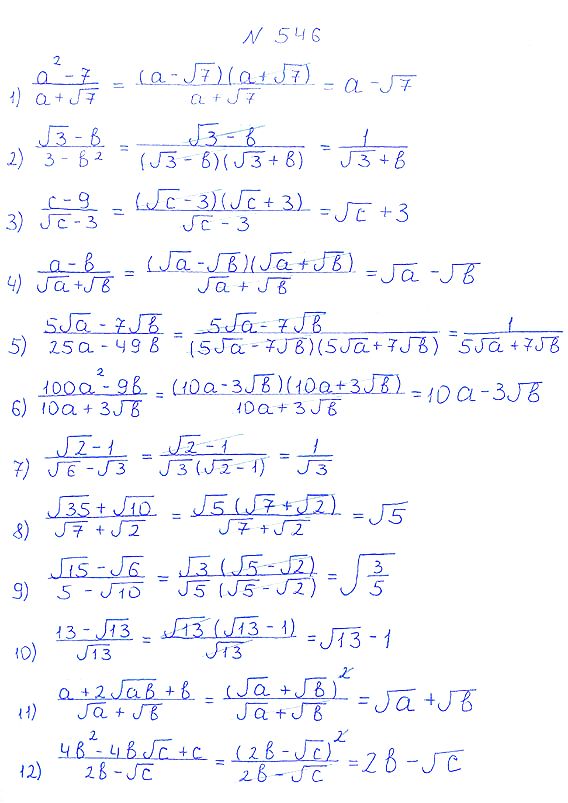 N 546
1) (a² - 7)/(a + √7) = ((a - √7)(a + √7))/(a + √7) = a - √7
2) (√3 - b)/(3 - b²) = (√3 - b)/((√3 - b)(√3 + b)) = 1/(√3 + b)
3) (c - 9)/(√c - 3) = ((√c - 3)(√c + 3))/(√c - 3) = √c + 3
4) (a - b)/(√a + √b) = ((√a - √b)(√a + √b))/(√a + √b) = √a - √b
5) (5√a - 7√b)/(25a - 49b) = (5√a - 7√b)/((5√a - 7√b)(5√a + 7√b)) = 1/(5√a + 7√b)
6) (100a² - 9b)/(10a + 3√b) = ((10a - 3√b)(10a + 3√b))/(10a + 3√b) = 10a - 3√b
7) (√2 - 1)/(√6 - √3) = (√2 - 1)/(√3(√2 - 1)) = 1/√3
8) (√35 + √10)/(√7 + √2) = (√5(√7 + √2))/(√7 + √2) = √5
9) (√15 - √6)/(5 - √10) = (√3(√5 - √2))/(√5(√5 - √2)) = √(3/5)
10) (13 - √13)/√13 = (√13(√13 - 1))/√13 = √13 - 1
11) (a + 2√ab + b)/(√a + √b) = (√a + √b)²/(√a + √b) = √a + √b
12) (4b² - 4b√c + c)/(2b - √c) = (2b - √c)²/(2b - √c) = 2b - √c